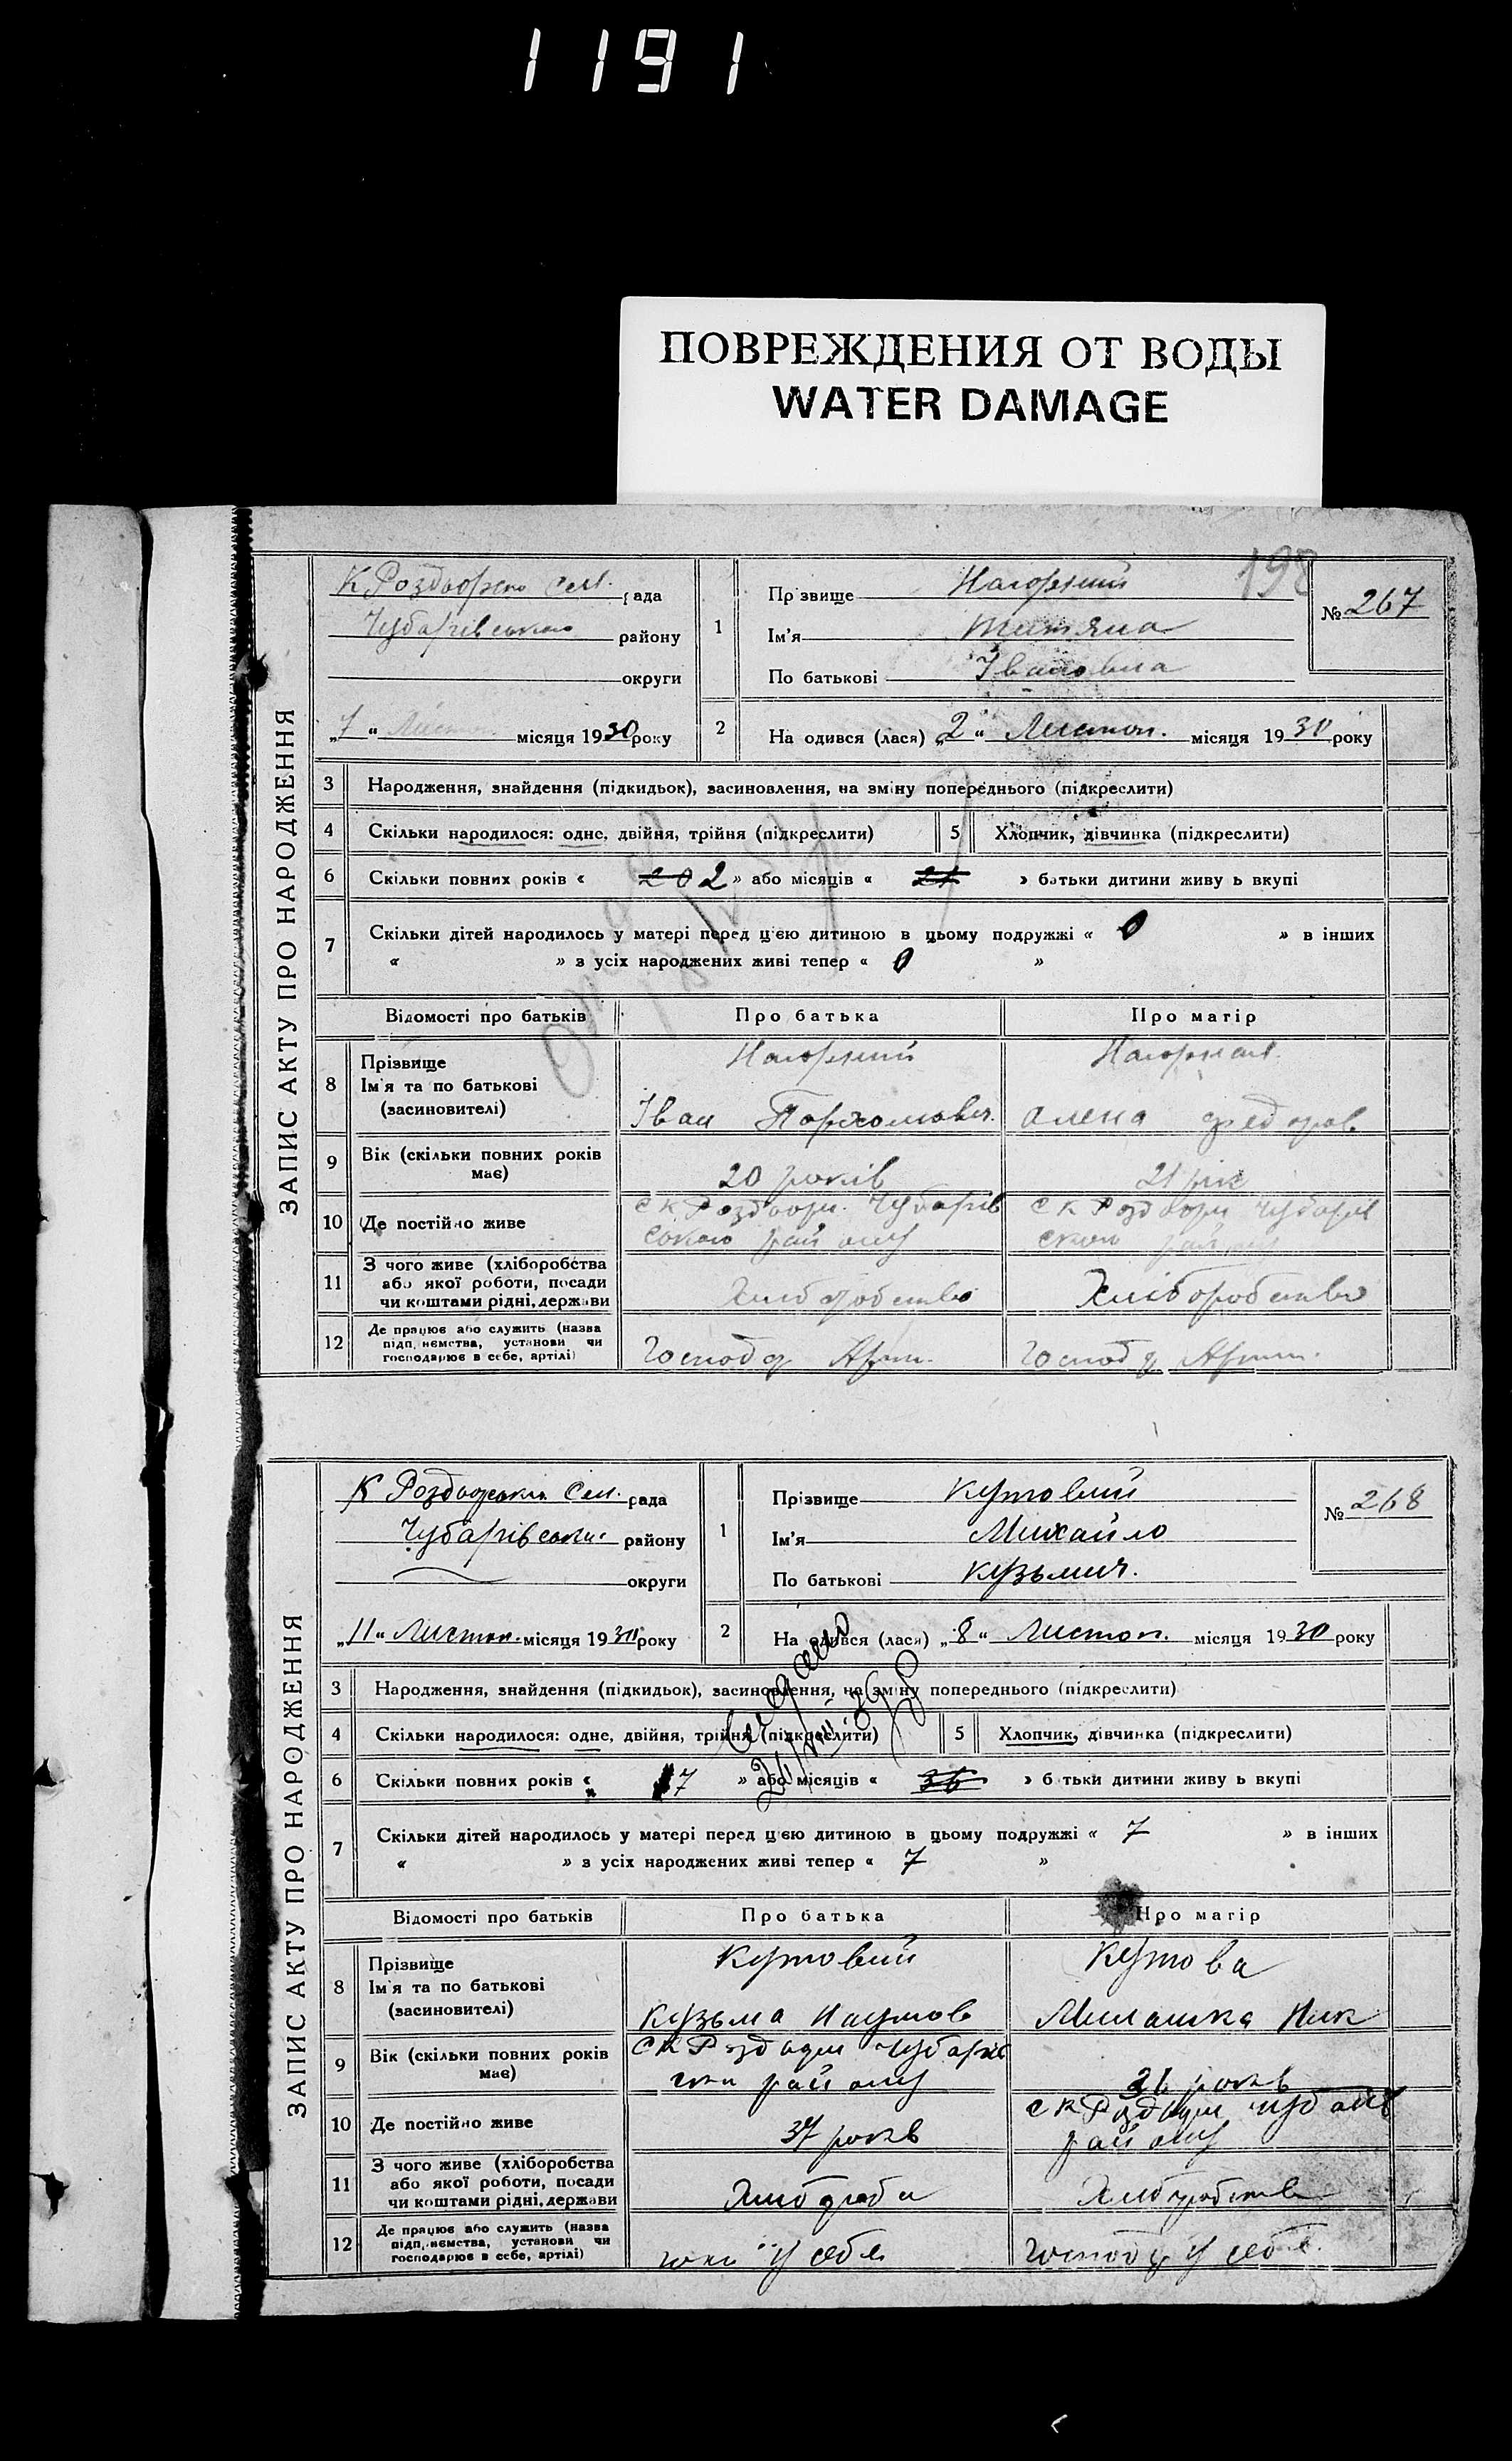 1191
ПОВРЕЖДЕНИЯ ОТ ВОДЫ
WATER DAMAGE
198
ЗАПИС АКТУ ПРО НАРОДЖЕННЯ
К Роздорсько Сел. рада
Чубарівського району
округи
„7“ Листоп. місяця 1930 року
1 Прізвище Нагорний
Ім'я Титяна
По батькові Івановна
№ 267
2 На одився (лася) „2“ Листоп. місяця 1930 року
3 Народження, знайдення (підкидьок), засиновлення, на зміну попереднього (підкреслити)
4 Скільки народилося: одне, двійня, трійня (підкреслити) 5 Хлопчик, дівчинка (підкреслити)
6 Скільки повних років « 20 2 » або місяців « 21 » батьки дитини живу ь вкупі
7 Скільки дітей народилось у матері перед цією дитиною в цьому подружжі « 0 » в інших
« » з усіх народжених живі тепер « 0 »
Відомості про батьків Про батька Про матір
8 Прізвище Нагорний Нагорная
Ім'я та по батькові
(засиновителі) Іван Пархомович. Олена Федоров
9 Вік (скільки повних років
має) 20 років 21 рік
10 Де постійно живе с К Роздори. Чубарів с К Роздори Чубарів
ського району ського району
11 З чого живе (хліборобства
або якої роботи, посади
чи коштами рідні, держави Хліборобство Хліборобство
12 Де працює або служить (назва
підп, иємства, установи чи
господарює в себе, артілі) Господ Арт. Господ Арт.
ЗАПИС АКТУ ПРО НАРОДЖЕННЯ
К Роздорсько Сел. рада
Чубарівсько району
округи
„11“ Листоп. місяця 1930 року
1 Прізвище Кутовий
Ім'я Михайло
По батькові Кузьмич.
№ 268
2 На одився (лася) „8“ Листоп. місяця 1930 року
3 Народження, знайдення (підкидьок), засиновлення, на зміну попереднього (підкреслити)
4 Скільки народилося: одне, двійня, трійня (підкреслити) 5 Хлопчик, дівчинка (підкреслити)
6 Скільки повних років « 17 » або місяців « 36 » б тьки дитини живу ь вкупі
7 Скільки дітей народилось у матері перед цією дитиною в цьому подружжі « 7 » в інших
« » з усіх народжених живі тепер « 7 »
Відомості про батьків Про батька Про матір
8 Прізвище Кутовий Кутова
Ім'я та по батькові
(засиновителі) Кузьма Наумов Милашка Ник
9 Вік (скільки повних років с К Роздори Чубарів
має) ско району 36 років
10 Де постійно живе 37 років с К Роздори Чубарів
району
11 З чого живе (хліборобства
або якої роботи, посади
чи коштами рідні, держави Хлібороби Хліборобств
12 Де працює або служить (назва
підп, иємства, установи чи
господарює в себе, артілі) у себе Господ у себе.